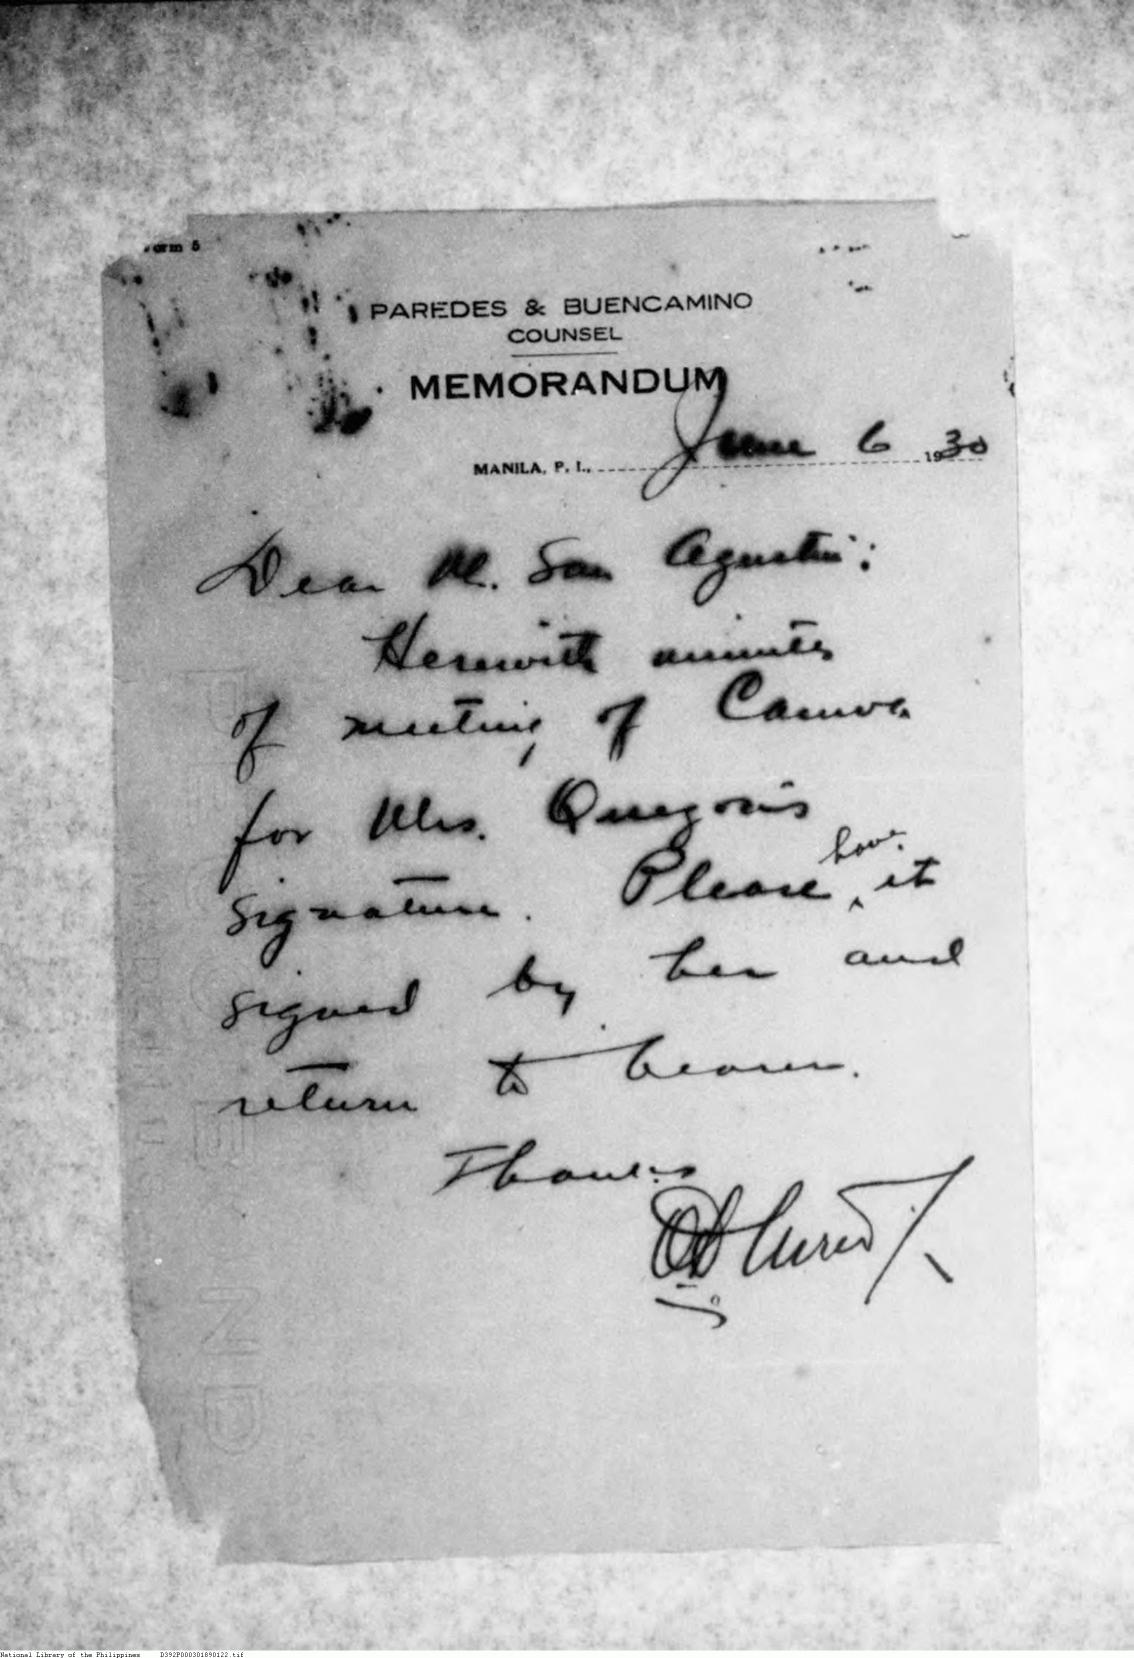 orm 5
PAREDES & BUENCAMINO
COUNSEL
MEMORANDUM
MANILA, P. I., June 6 1930
Dear M. San Agustin:
Herewith minutes
of meeting of
for Mrs. Quezon's
signature. Please have it
signed by her and
return to bearer.
Thanks
National Library of the Philippines D392P000301890122.tif